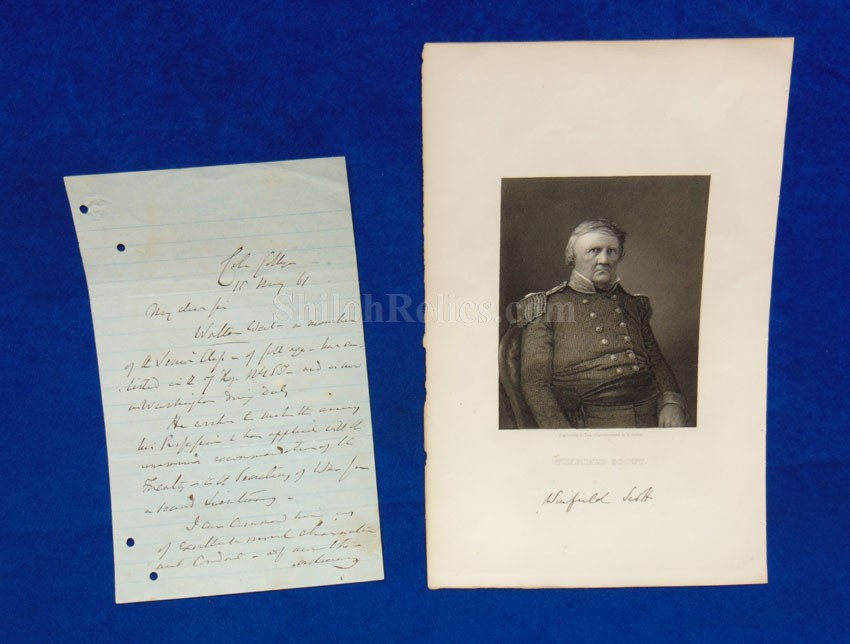 Col. Colly
15 May 61
My dear Sir
Walter West - a member
of the Junior Class - of full age - has en-
listed in the 7 Reg. - and is now
in Washington doing duty
He wishes to make the army
his Profession & has applied with the
unanimous recommendation of the
Faculty - to the Secretary of War for
a second Lieutenancy -
I can commend him as
of excellent moral character
and Conduct - as are the
ShilohRelics.com
WINFIELD SCOTT.
Winfield Scott